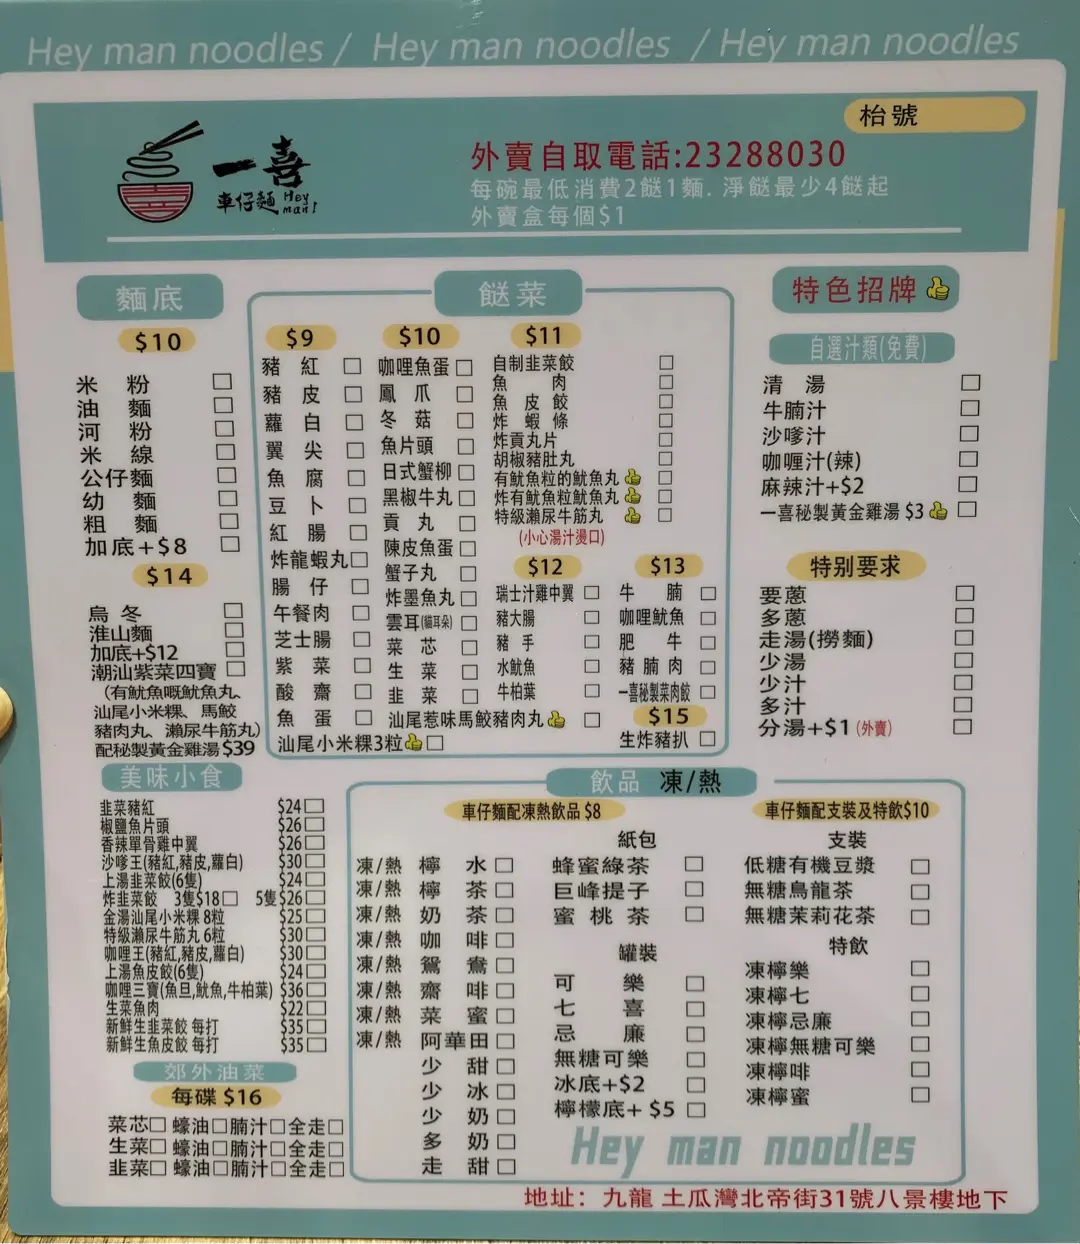 Hey man noodles / Hey man noodles / Hey man noodles
枱號
一喜
車仔麵 Hey man!
外賣自取電話:23288030
每碗最低消費2餸1麵. 淨餸最少4餸起
外賣盒每個$1
麵底
$10
米粉
油麵
河粉
米線
公仔麵
幼麵
粗麵
加底+$8
$14
烏冬
淮山麵
加底+$12
潮汕紫菜四寶
(有魷魚嘅魷魚丸、
汕尾小米粿、馬鮫
豬肉丸、瀨尿牛筋丸)
配秘製黃金雞湯$39
餸菜
$9
豬紅
豬皮
蘿白
翼尖
魚腐
豆卜
紅腸
炸龍蝦丸
腸仔
午餐肉
芝士腸
紫菜
酸齋
魚蛋
汕尾小米粿3粒
$10
咖哩魚蛋
鳳爪
冬菇
魚片頭
日式蟹柳
黑椒牛丸
貢丸
陳皮魚蛋
蟹子丸
炸墨魚丸
雲耳(貓耳朵)
菜芯
生菜
韭菜
汕尾惹味馬鮫豬肉丸
$11
自制韭菜餃
魚肉
魚皮餃
炸蝦條
炸貢丸片
胡椒豬肚丸
有魷魚粒的魷魚丸
炸有魷魚粒魷魚丸
特級瀨尿牛筋丸
(小心湯汁燙口)
$12
瑞士汁雞中翼
豬大腸
豬手
水魷魚
牛柏葉
$13
牛腩
咖哩魷魚
肥牛
豬腩肉
一喜秘製菜肉餃
$15
生炸豬扒
特色招牌
自選汁類(免費)
清湯
牛腩汁
沙嗲汁
咖喱汁(辣)
麻辣汁+$2
一喜秘製黃金雞湯 $3
特別要求
要蔥
多蔥
走湯(撈麵)
少湯
少汁
多汁
分湯+$1 (外賣)
美味小食
韭菜豬紅 $24
椒鹽魚片頭 $26
香辣單骨雞中翼 $26
沙嗲王(豬紅,豬皮,蘿白) $30
上湯韭菜餃(6隻) $24
炸韭菜餃 3隻$18 5隻$26
金湯汕尾小米粿 8粒 $25
特級瀨尿牛筋丸 6粒 $30
咖哩王(豬紅,豬皮,蘿白) $30
上湯魚皮餃(6隻) $24
咖哩三寶(魚旦,魷魚,牛柏葉) $36
生菜魚肉 $22
新鮮生韭菜餃 每打 $35
新鮮生魚皮餃 每打 $35
郊外油菜
每碟 $16
菜芯 蠔油 腩汁 全走
生菜 蠔油 腩汁 全走
韭菜 蠔油 腩汁 全走
飲品 凍/熱
車仔麵配凍熱飲品 $8
凍/熱 檸水
凍/熱 檸茶
凍/熱 奶茶
凍/熱 咖啡
凍/熱 鴛鴦
凍/熱 齋啡
凍/熱 菜蜜
凍/熱 阿華田
少甜
少冰
少奶
多奶
走甜
紙包
蜂蜜綠茶
巨峰提子
蜜桃茶
罐裝
可樂
七喜
忌廉
無糖可樂
冰底+$2
檸檬底+ $5
車仔麵配支裝及特飲$10
支裝
低糖有機豆漿
無糖烏龍茶
無糖茉莉花茶
特飲
凍檸樂
凍檸七
凍檸忌廉
凍檸無糖可樂
凍檸啡
凍檸蜜
Hey man noodles
地址：九龍 土瓜灣北帝街31號八景樓地下